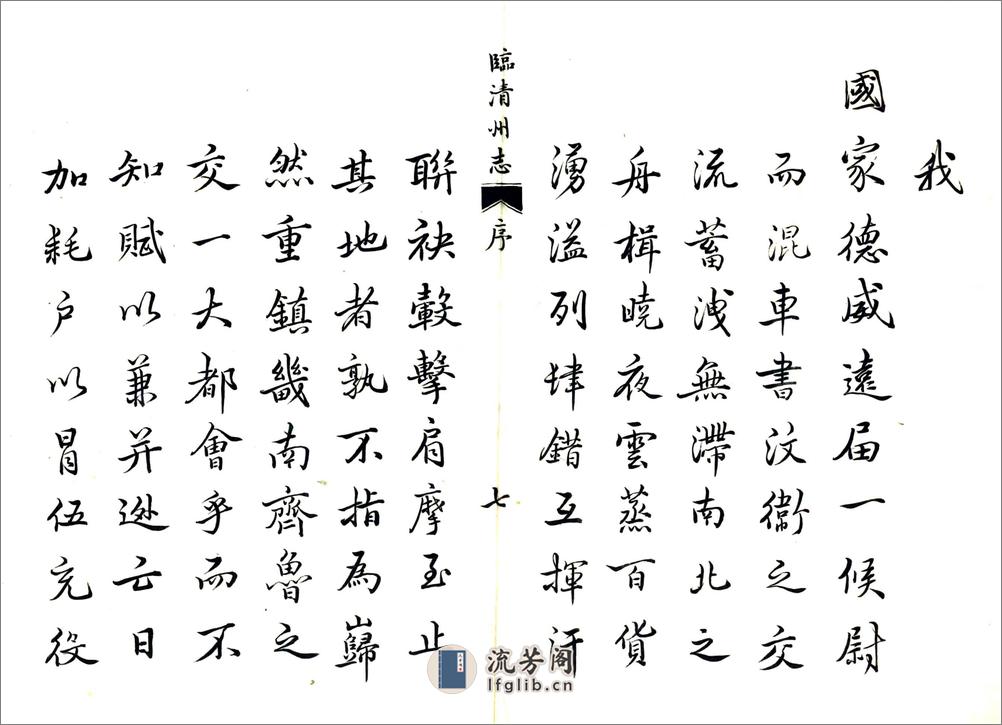 我
國家德威遠届一候尉
而混車書汶衞之交
流蓄洩無滯南北之
舟楫曉夜雲蒸百貨
湧溢列肆錯互揮汗
臨清州志
序
七
聯袂轂擊肩摩至止
其地者孰不指為巋
然重鎮畿南齊魯之
交一大都會乎而不
知賦以兼并逊亡日
加耗户以冒伍充役
流芳阁
lfglib.cn